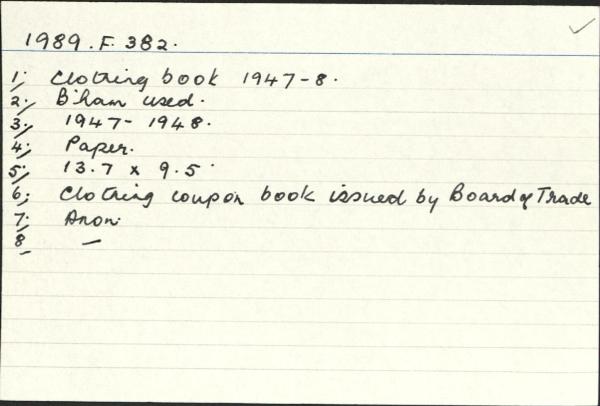 1989.F.382.
1; Clothing book 1947-8.
2; B'ham used.
3; 1947-1948.
4; Paper.
5; 13.7 x 9.5
6; Clothing coupon book issued by Board of Trade
7; Anon.
8 —